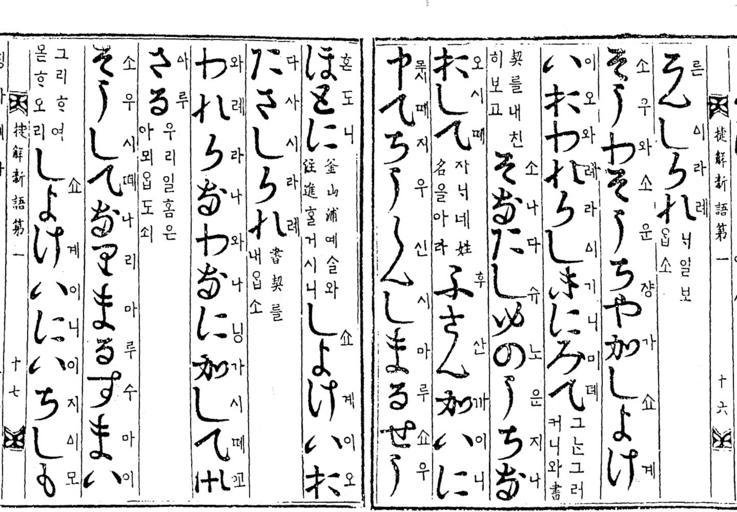 捷解新語第一 十六
른시라레
ろんしられ
닉일보
읍소
소우와소운쟝가쇼계
そうわそうちやかしよけ
이오와례라시기니미뗴
いおわれらしきにみて
그는그러
커니와書
契를내친
히보고
소나다슈노운지나
そなたしゆのうちな
오시뗴
おして
名을아라
후산까이니
ふさんかいに
뗴지우신시마루쇼우
申てちうしんしまるせう
혼도니
ほとに
釜山浦예술와
住進홀거시니
쇼계이오
しよけいお
다사시라례
たさしられ
書契를
내옵소
와례라나와나닝가시뗴
われらなわなにかして
아루
さる
우리일홈은
아뫼옵도쇠
소우시뗴나리마루수마이
そうしてなりまるすまい
그리ᄒᆞ여
몯ᄒᆞ오리
쇼계이니이지시모
しよけいにいちしも
捷解新語第一 十七